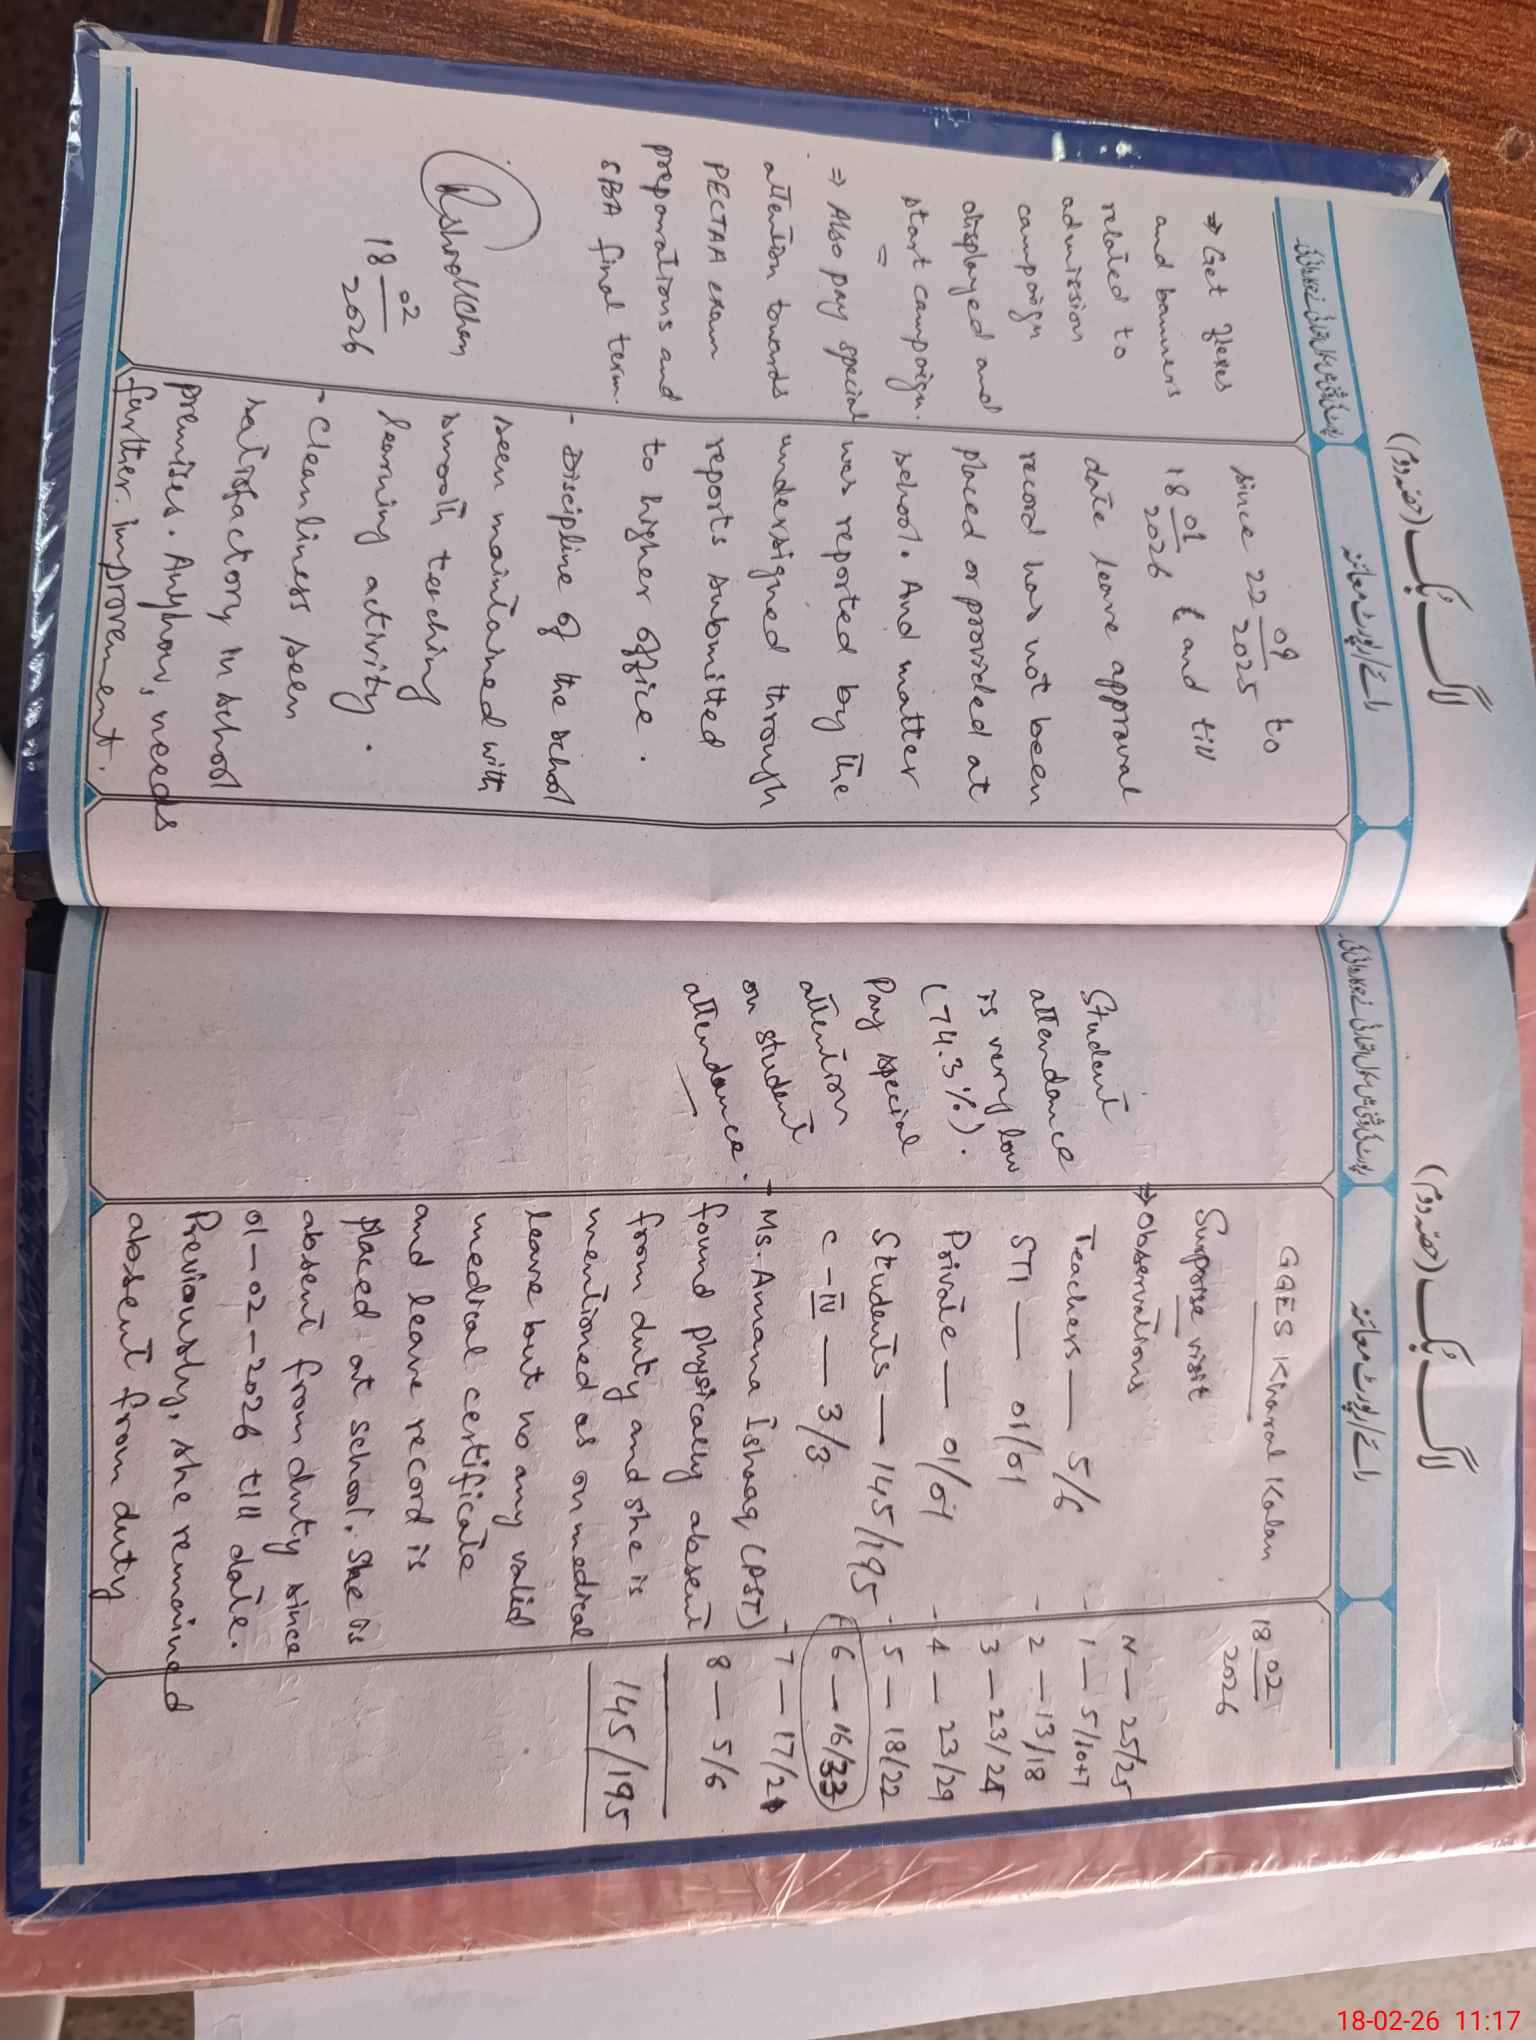 لاگ بک (حصہ دوم)
رائے / رپورٹ معائنہ
18 02 2026
GGES Kharal Kalan
Surprise visit
⇒ Observations
Teachers — 5/6
STI — 01/01
Private — 01/01
Students — 145/195
C - IV — 3/3
- Ms. Amana Ishaaq (PST)
found physically absent
from duty and she is
mentioned as on medical
leave but no any valid
medical certificate
and leave record is
placed at school. She is
absent from duty since
01-02-2026 till date.
Previously, she remained
absent from duty
N — 25/25
- 1 — 5/10+7
- 2 — 13/18
3 — 23/24
- 4 — 23/29
- 5 — 18/22
6 — 16/33
- 7 — 17/21
8 — 5/6
145/195
Student
attendance
is very low
(74.3%).
Pay special
attention
on student
attendance.
لاگ بک (حصہ دوم)
رائے / رپورٹ معائنہ
since 22 09 2025 to
18 01 2026 & and till
date leave approval
record has not been
placed or provided at
school. And matter
was reported by the
undersigned through
reports submitted
to higher office.
- Discipline of the school
seen maintained with
smooth teaching
learning activity.
- Cleanliness seen
satisfactory in school
premises. Anyhow, needs
further improvement.
⇒ Get flexes
and banners
related to
admission
campaign
displayed and
start campaign.
⇒ Also pay special
attention towards
PECTAA exam
preparations and
SBA final term.
18 02 2026
18-02-26 11:17